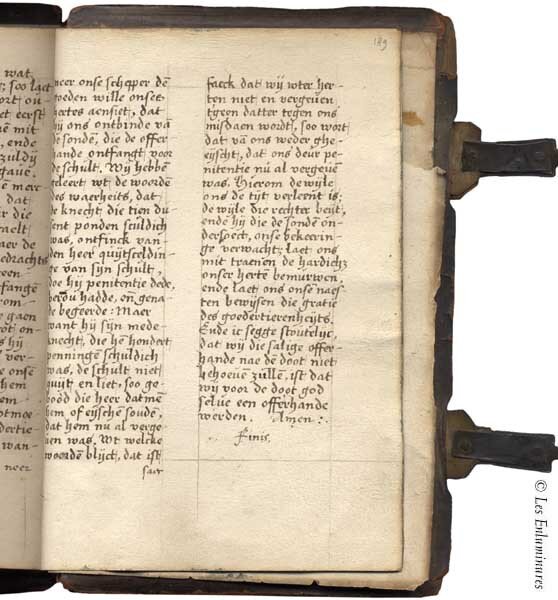 wat
; soo laet
ort ou-
et eerst
mit
, ende
zuldij
gaue.
mer
dat
ir die
raelt
aer de
edrachts
reen
fangē
rom-
e gaen
rot on-
s hij
ver-
e onse
hem
em
otmoe-
dertie-
wan-
neer
neer onse schepper dē
goeden wille onses
hertes aensiet, dat
hij ons ontbinde vā
de sonden, die de offer
hande ontfangt voor
de schult. Wij hebbē
geleert wt de woordē
des waerheits, dat
de knecht, die tien du
sent ponden sculdich
was, ontfinck van
den heer quijtscheldin-
ge van sijn schult,
doe hij penitentie dede,
berou hadde, en gena-
de begeerde: Maer
want hij sijn mede
knecht, die hē hondert
penningē schuldich
was, de schult niet
quijt en liet, soo ge-
bood die heer datmē
hem of eijschē soude,
dat hem nu al verge-
uen was. Wt welche
woordē blijct, dat ist
saec
189
saeck dat wij wter her-
ten niet en vergeuen
tgeen datter tegen ons
misdaen wordt, soo wort
dat vā ons weder ghe-
eijscht, dat ons deur pe-
nitentie nu al vergeuē
was. Hierom dewijle
ons de tijt verleent is;
de wijle die rechter beijt,
ende hij die de sonden on-
dersoect, onse bekeerin-
ge verwacht; laet ons
mit traenen de hardichz
onser herte bemurwen,
ende laet ons onse naes-
ten bewijsen die gratie
des goedertierenheijts.
Ende ic segge stoutelijc,
dat wij die salige offer-
hande nae dē doot niet
behoeuē zullē, ist dat
wij voor de doot god
selue een offerhande
werden. Amen:.
Finis.
© Les Enluminures